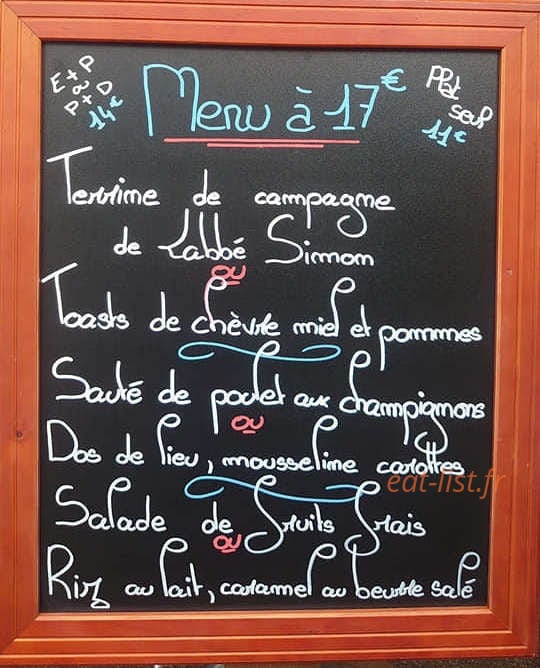 E+P
ou
P+D
14€
Menu à 17€
Plat
seul
11€
Terrine de campagne
de l'abbé Simon
ou
Toasts de chèvre miel et pommes
Sauté de poulet aux champignons
ou
Dos de lieu, mousseline carottes
eat-list.fr
Salade de fruits frais
ou
Riz au lait, caramel au beurre salé